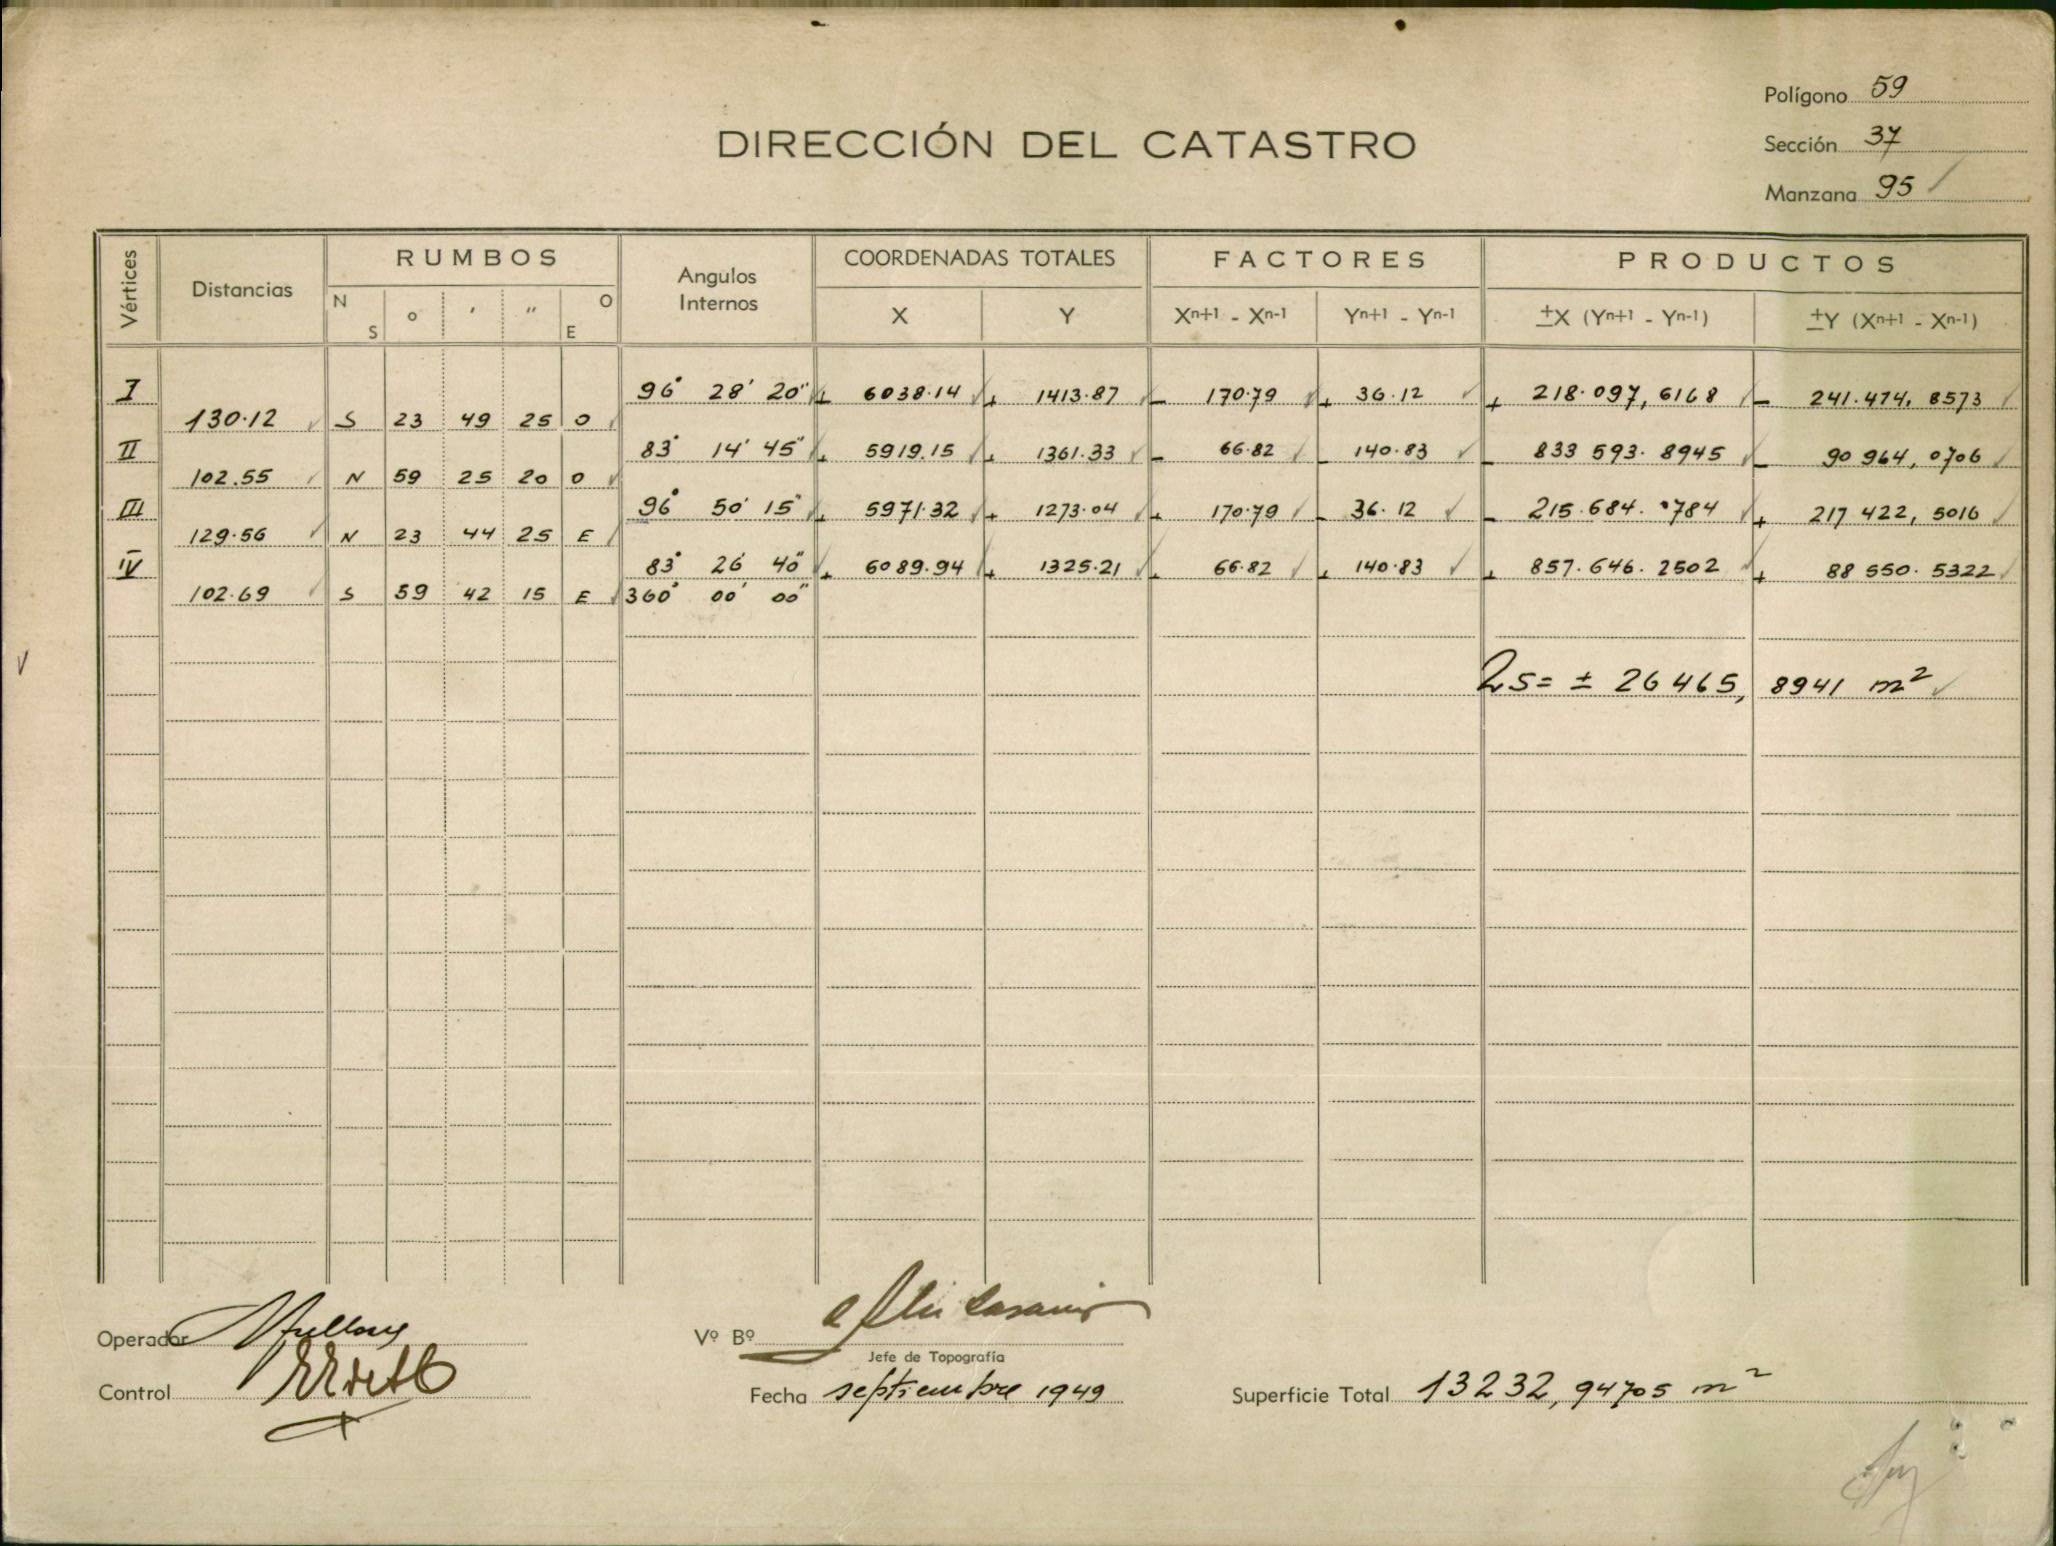 Polígono 59
DIRECCIÓN DEL CATASTRO
Sección 37
Manzana 95
Vértices Distancias RUMBOS Angulos Internos COORDENADAS TOTALES FACTORES PRODUCTOS
N S ° ′ ″ O E X Y Xn+1 - Xn-1 Yn+1 - Yn-1 ±X (Yn+1 - Yn-1) ±Y (Xn+1 - Xn-1)
I 96° 28' 20" + 6038.14 + 1413.87 - 170.79 + 36.12 + 218.097,6168 - 241.474,8573
130.12 S 23 49 25 O
II 83° 14' 45" + 5919.15 + 1361.33 - 66.82 - 140.83 - 833 593.8945 - 90 964,0706
102.55 N 59 25 20 O
III 96° 50' 15" + 5971.32 + 1273.04 + 170.79 - 36.12 - 215.684.0784 + 217 422,5016
129.56 N 23 44 25 E
IV 83° 26' 40" + 6089.94 + 1325.21 + 66.82 + 140.83 + 857.646.2502 + 88 550.5322
102.69 S 59 42 15 E 360° 00' 00"
2s= ± 26465,8941 m²
Operador
Vº Bº
Jefe de Topografía
Control
Fecha septiembre 1949
Superficie Total 13232,94705 m²